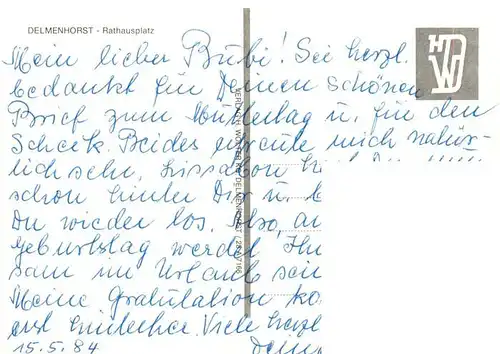 DELMENHORST - Rathausplatz
HDW
Mein lieber Bubi! Sei herzl.
bedankt für Deinen schönen
Brief zum Muttertag u. für den
Scheck. Beides freute mich natür-
lich sehr. Lissabon h
schon hinter Dir u.
Du wieder los. Also, an
Geburtstag werdet Ihr
sam im Urlaub sein
Meine Gratulation ko
erst hinterher. Viele herzl
15.5.84